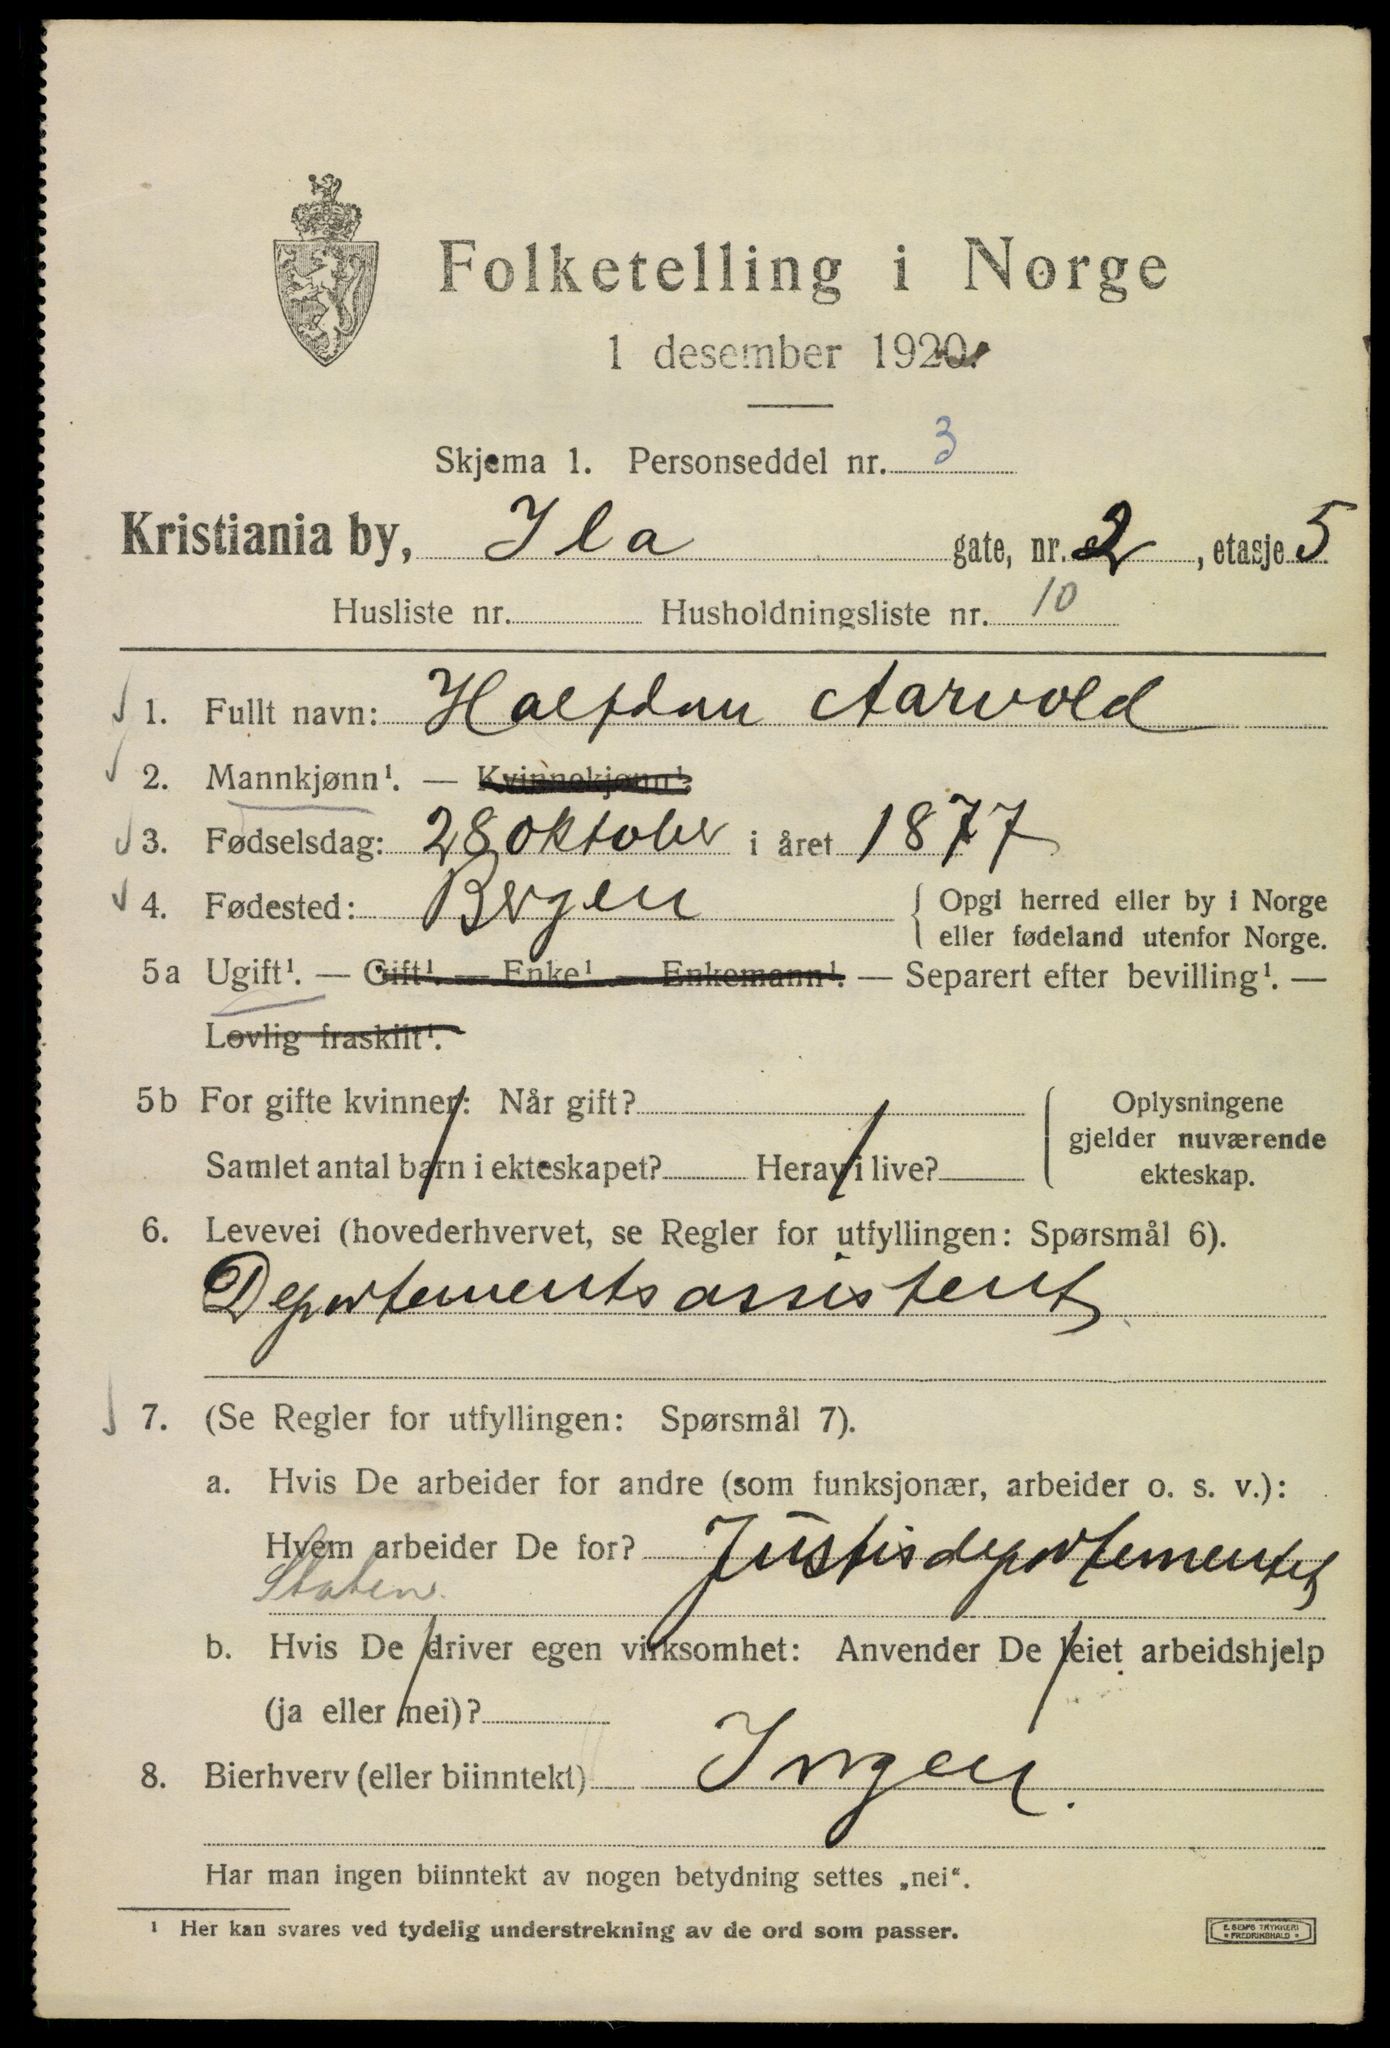 Folketelling i Norge
1 desember 1920.
Skjema 1. Personseddel nr. 3
Kristiania by, Ila gate, nr. 2, etasje 5
Husliste nr. Husholdningsliste nr. 10
1. Fullt navn: Halfdan Aarvold
2. Mannkjønn¹. — Kvinnekjønn¹.
3. Fødselsdag: 28 oktober i året 1877
4. Fødested: Bergen { Opgi herred eller by i Norge
eller fødeland utenfor Norge.
5a Ugift¹. — Gift¹. — Enke¹ — Enkemann¹. — Separert efter bevilling¹. —
Lovlig fraskilt¹.
5b For gifte kvinner: Når gift? Oplysningene
gjelder nuværende
Samlet antal barn i ekteskapet? Herav i live? ekteskap.
6. Levevei (hovederhvervet, se Regler for utfyllingen: Spørsmål 6).
Departementsassistent
7. (Se Regler for utfyllingen: Spørsmål 7).
a. Hvis De arbeider for andre (som funksjonær, arbeider o. s. v.):
Hvem arbeider De for? Justisdepartementet
Staten.
b. Hvis De driver egen virksomhet: Anvender De leiet arbeidshjelp
(ja eller nei)?
8. Bierhverv (eller biinntekt) Ingen.
Har man ingen biinntekt av nogen betydning settes „nei“.
¹ Her kan svares ved tydelig understrekning av de ord som passer.
E. SEM'S TRYKKERI
* FREDRIKSHALD *